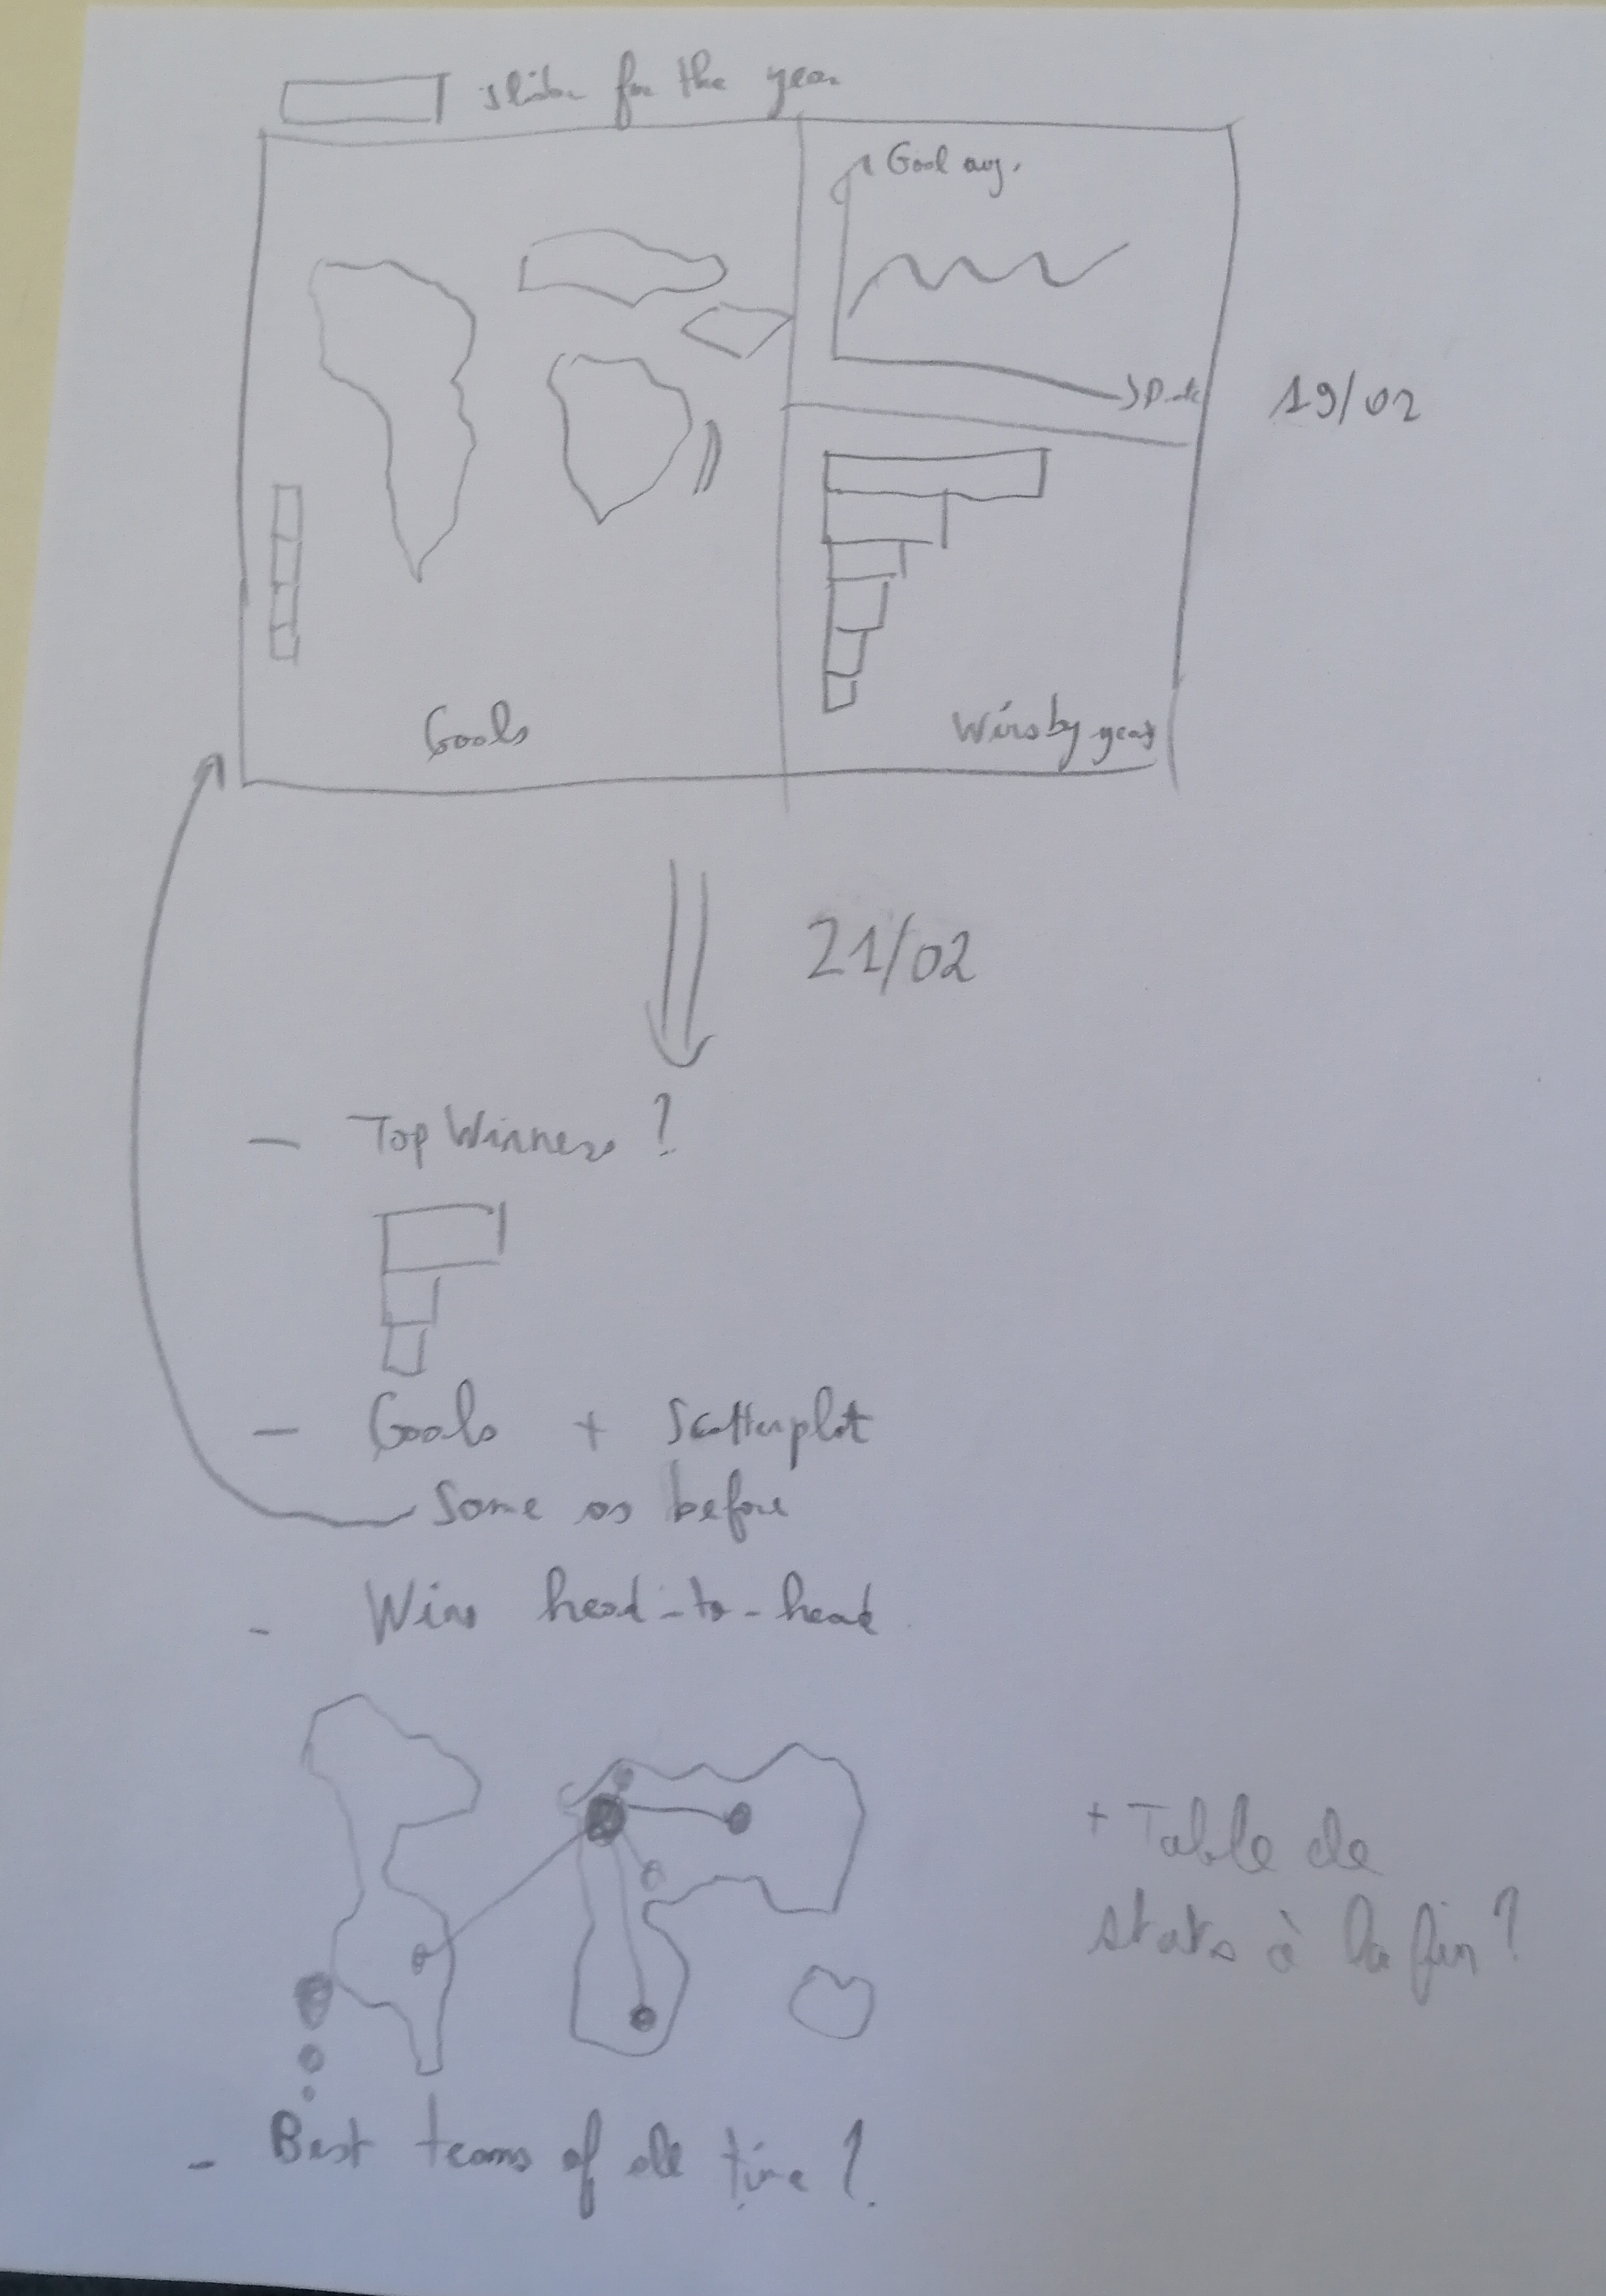 slider for the year
Goal avg.
Date
19/02
Goals
Wins by year
21/02
- Top Winners ?
- Goals + Scatterplot
Same as before
- Wins head-to-head
+ Table de
stats à la fin ?
- Best teams of all time ?